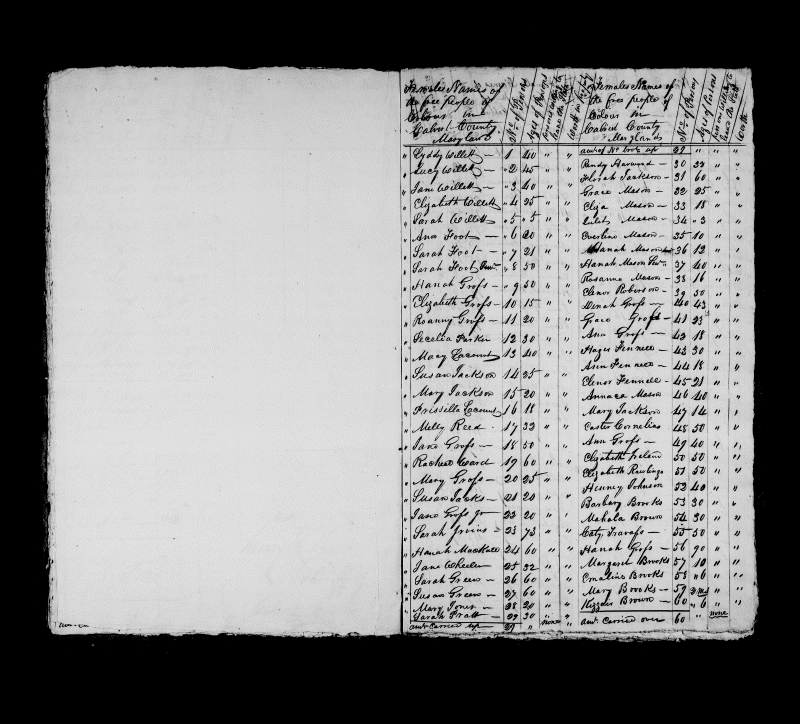 Females Names of
the free people of
Colour in
Calvert County
Maryland
No. of Persons
Ages of Persons
" Lyddy Willett 1 40 " "
" Lucy Willett " 2 45 " "
" Jane Willett " 3 40 " "
" Elizabeth Willett " 4 25 " "
" Sarah Willett " 5 " 5 " "
" Ann Foot " 6 20 " "
" Sarah Foot " 7 21 " "
" Sarah Foot " 8 50 " "
" Hanah Gross " 9 50 " "
" Elizabeth Gross 10 15 " "
" Roanny Gross 11 20 " "
" Secelia Parker 12 30 " "
" Macy 13 40 " "
" Susan Jackson 14 25 " "
" Mary Jackson 15 20 " "
" Prissilla 16 18 " "
" Milly Reed 17 33 " "
" Jane Gross 18 50 " "
" Racheal Ward 19 60 " "
" Mary Gross 20 25 " "
" Susan Jacks 21 20 " "
" Jane Gross Jr 22 20 " "
" Sarah 23 73 " "
" Hanah Mackall 24 60 " "
" Jane Wheeler 25 32 " "
" Sarah Green 26 60 " "
" Susan Green 27 60 " "
" Mary Jones 28 20 " "
" Sarah Pratt 29 30 " "
amt. Carried up 29 " none "
Females Names of
the free people of
Colour in
Calvert County
Maryland
No. of Persons
Ages of Persons
persons willing to
leave the State
Worth
amt of No. brot. up 29 " " "
Harwood 30 33 " "
Florah Jackson 31 60 " "
Grace Mason 32 25 " "
Eliza Mason 33 18 " "
Mason 34 " 3 " "
Everline Mason 35 10 " "
Hanah Mason 36 12 " "
Hanah Mason 37 40 " "
Rosanna Mason 38 16 " "
Elenor Roberson 39 30 " "
Dinah Gross 40 43 " "
Grace Gross 41 23 " "
Ann Gross 42 18 " "
Hager Fennell 43 30 " "
Ann Fennell 44 18 " "
Elenor Fennell 45 21 " "
Mason 46 40 " "
Mary Jackson 47 14 " "
Cornelius 48 50 " "
Ann Gross 49 40 " "
Elizabeth Ireland 50 50 " "
Elizabeth Rawlings 51 50 " "
Henney Johnson 52 40 " "
Barbary Brooks 53 30 " "
Mahala Brown 54 30 " "
Caty 55 50 " "
Hanah Gross 56 90 " "
Margaret Brooks 57 10 " "
Brooks 58 " 6 " "
Mary Brooks 59 " "
Brown 60 " 6 " "
amt. Carried over 60 " none "